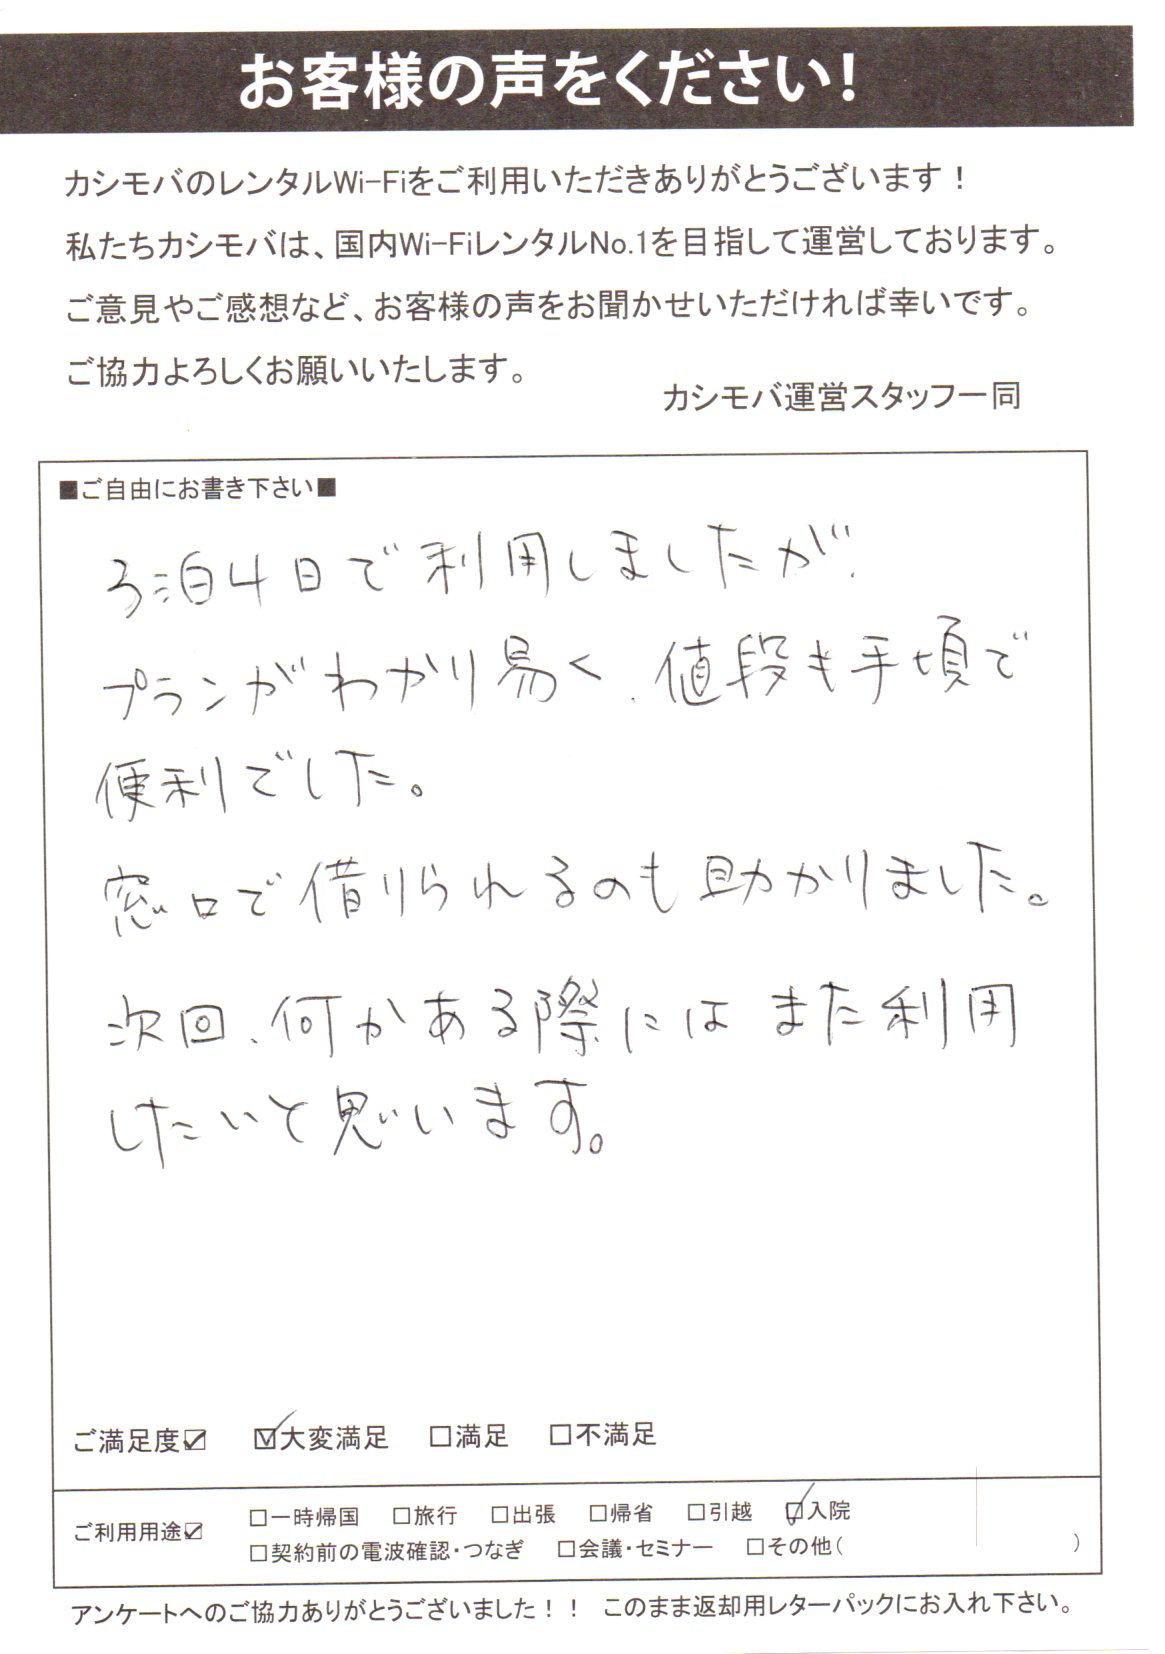 お客様の声をください!
カシモバのレンタルWi-Fiをご利用いただきありがとうございます！
私たちカシモバは、国内Wi-FiレンタルNo.1を目指して運営しております。
ご意見やご感想など、お客様の声をお聞かせいただければ幸いです。
ご協力よろしくお願いいたします。
カシモバ運営スタッフ一同
■ご自由にお書き下さい■
3泊4日で利用しましたが、
プランがわかり易く、値段も手頃で
便利でした。
窓口で借りられるのも助かりました。
次回、何かある際にはまた利用
したいと思います。
ご満足度☑ ☑大変満足 □満足 □不満足
ご利用用途☑ □一時帰国 □旅行 □出張 □帰省 □引越 ☑入院
□契約前の電波確認・つなぎ □会議・セミナー □その他( )
アンケートへのご協力ありがとうございました！！ このまま返却用レターパックにお入れ下さい。